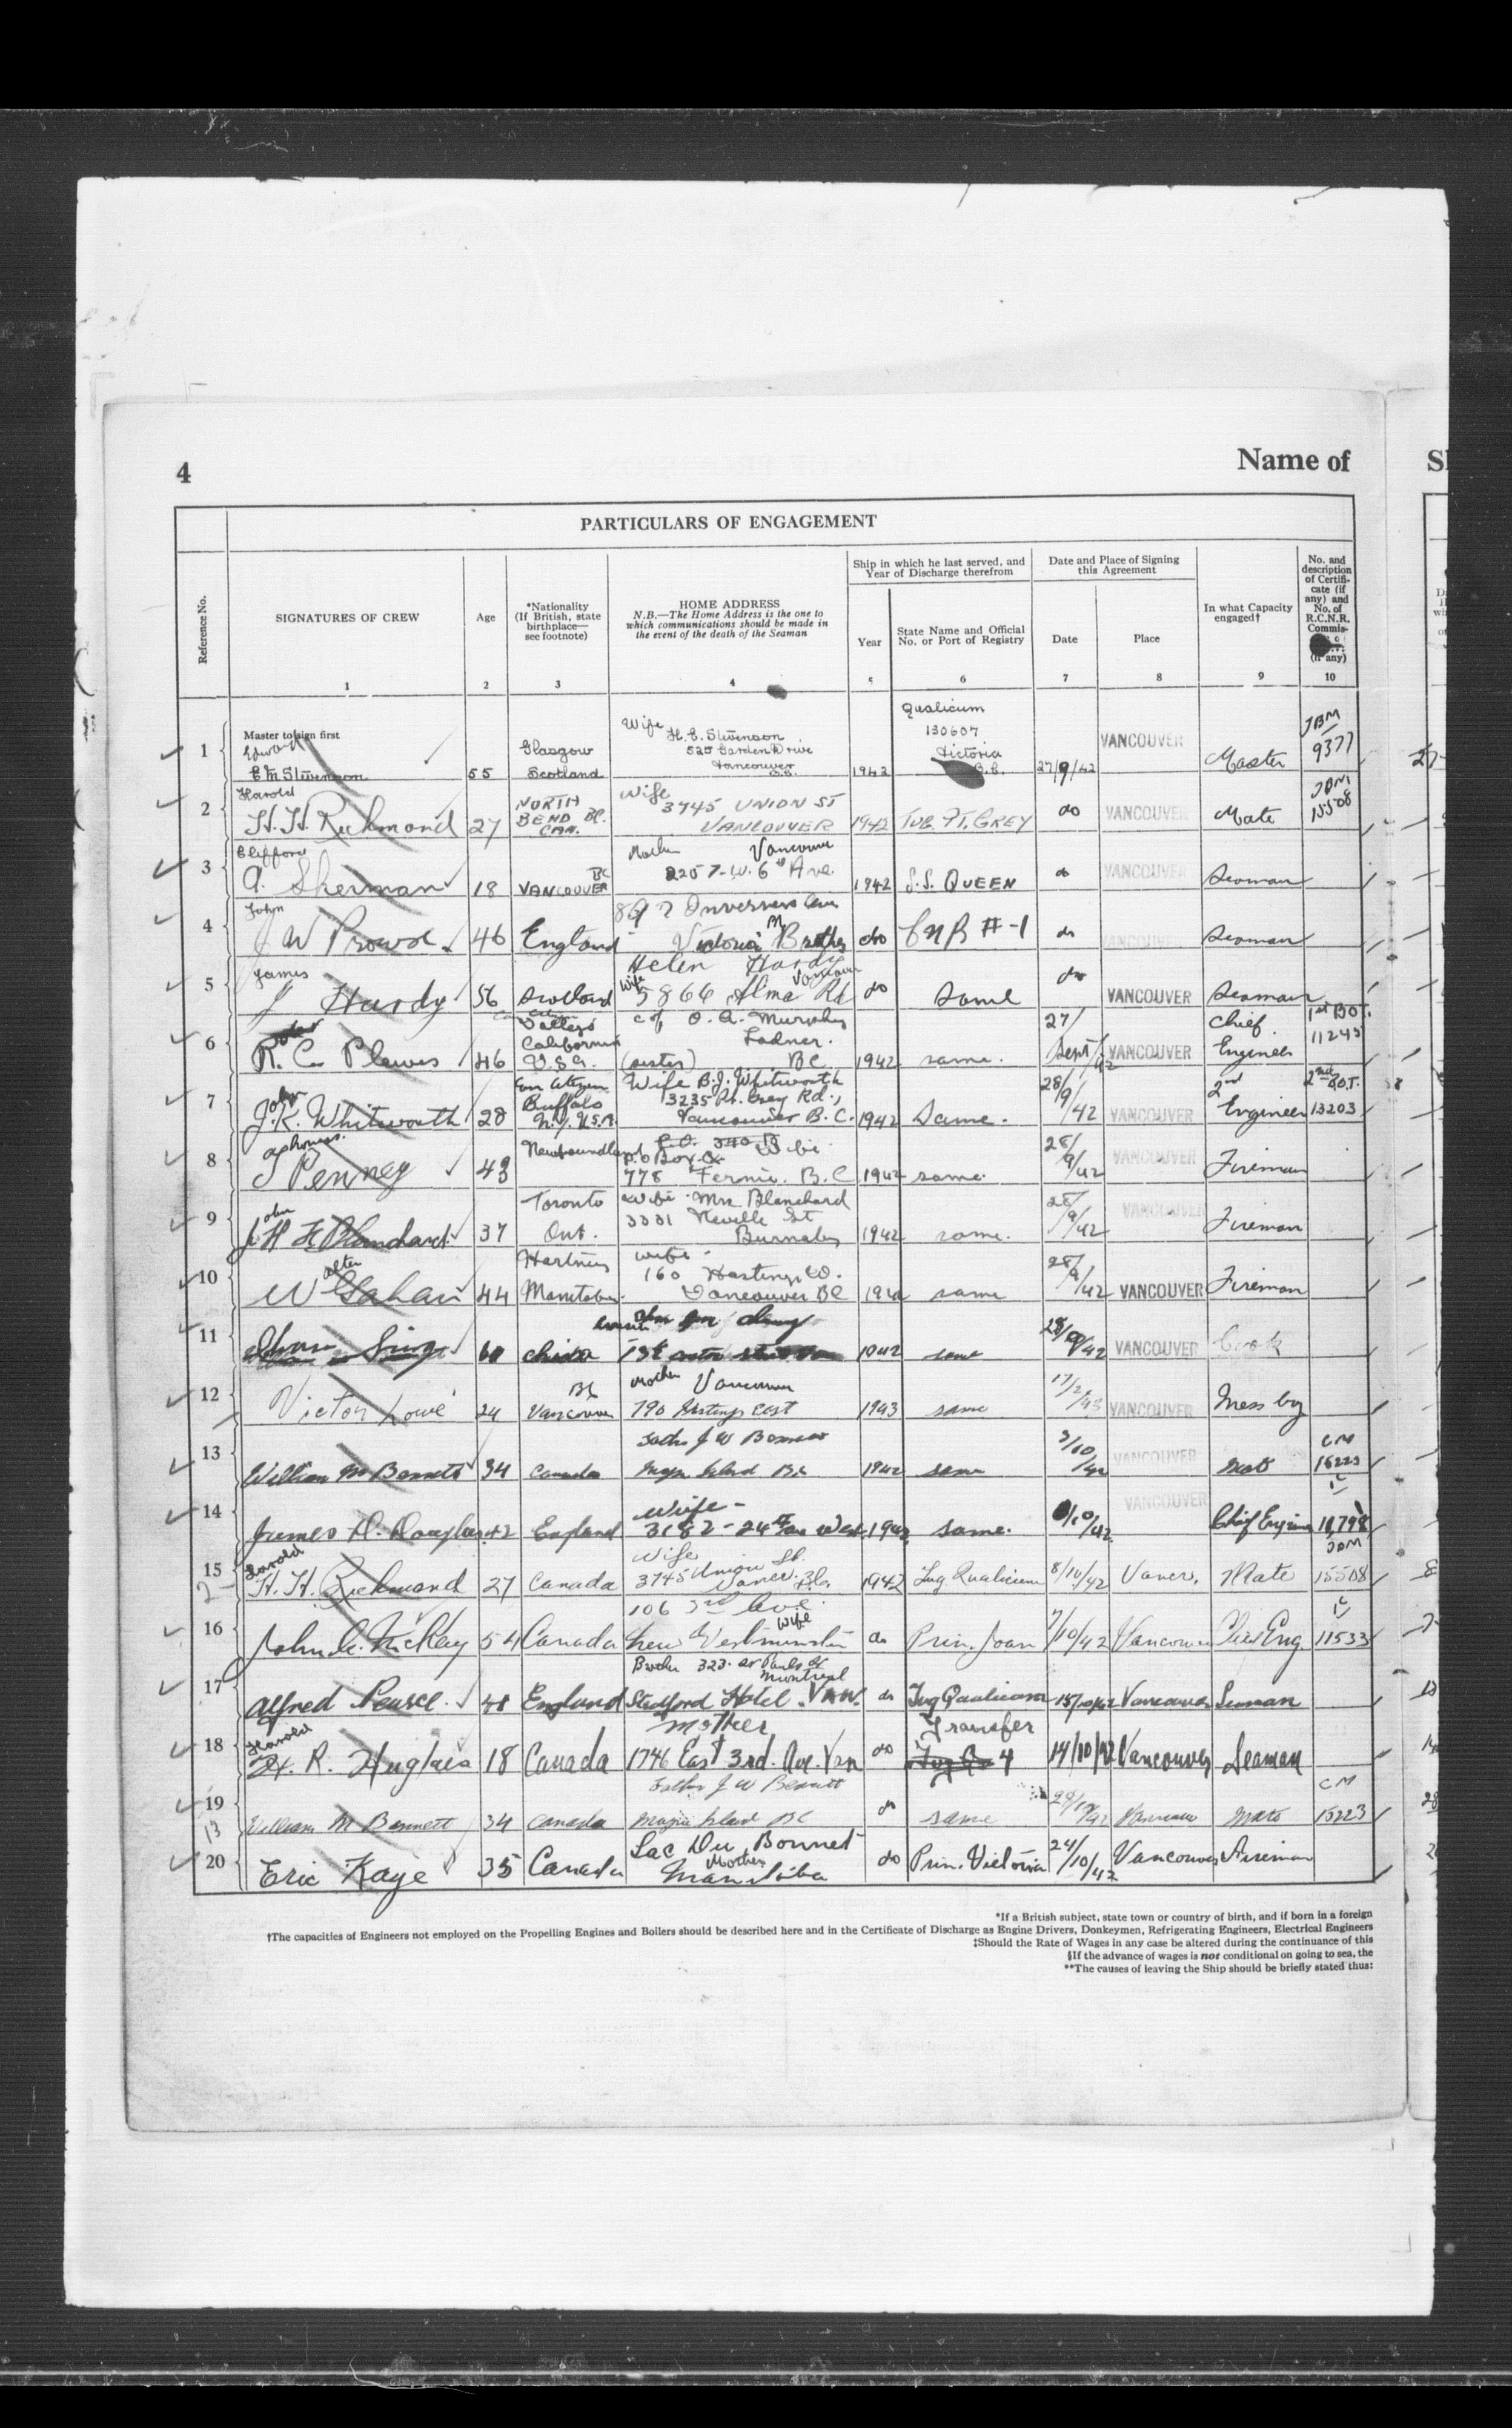 4
Name of
PARTICULARS OF ENGAGEMENT
Reference No.
SIGNATURES OF CREW
Age
*Nationality
(If British, state
birthplace—
see footnote)
HOME ADDRESS
N.B.—The Home Address is the one to
which communications should be made in
the event of the death of the Seaman
Ship in which he last served, and
Year of Discharge therefrom
Year
State Name and Official
No. or Port of Registry
Date and Place of Signing
this Agreement
Date
Place
In what Capacity
engaged†
No. and
description
of Certifi-
cate (if
any) and
No. of
R.C.N.R.
Commis-
(if any)
1 2 3 4 5 6 7 8 9 10
1 Master to sign first
Edward
E M Stevenson 55 Glasgow
Scotland
Wife H. E. Stevenson
525 Garden Drive
Vancouver
B.C.
1942
Qualicum
130607
Victoria
B.C.
27/9/42 VANCOUVER Master JBM
9377
2 Harold
H. H. Richmond 27 NORTH
BEND BC.
CAN.
Wife
3745 UNION ST
VANCOUVER 1942 TUG PT. GREY do VANCOUVER Mate JBM
15508
3 Clifford
A. Sherman 18 BC
VANCOUVER
Mother Vancouver
2257-W. 6th Ave. 1942 S.S. QUEEN do VANCOUVER Seaman
4 John
J W Prowse 46 England
Inverness
Victoria Brother do CNR #-1 do VANCOUVER Seaman
5 James
J Hardy 56 Scotland
Helen Hardy
Wife Vancouver
5866 Alma Rd do Same do VANCOUVER Seaman
6 R. C. Plewes 46 Vallejo
California
U.S.A.
c/o O. A. Murphy
Ladner.
(sister) BC 1942 same. 27/
Sept/42 VANCOUVER Chief.
Engineer 1st BOT.
11245
7 John
J.K. Whitworth 28 Can Citizen
Buffalo
N.Y. U.S.A.
Wife B.J. Whitworth
3235 Pt. Grey Rd.,
Vancouver B.C. 1942 Same. 28/
9/
42 VANCOUVER 2nd
Engineer 2nd B.O.T.
13203
8 Thomas
T Penney 43 Newfoundland
P.O Box Wife
778 Fernie. B.C 1942 same. 28/
9/42 VANCOUVER Fireman
9 John
J. H Blanchard 37 Toronto
Ont.
Wife - Mrs Blanchard
3331 Neville St
Burnaby 1942 same. 28/
9/42 VANCOUVER Fireman
10 Walter
W Gahan 44 Hartney
Manitoba.
wife -
160 Hastings W.
Vancouver BC 1942 same 28/
9/42 VANCOUVER Fireman
11 60 China 1942 same 28/9/42 VANCOUVER Cook
12 Victor Lowe 24 BC
Vancouver
Mother Vancouver
790 Hastings East 1943 same 17/2/43 VANCOUVER Mess boy
13 William M Bennett 34 Canada
Father J W Bennett
Mayne Island B.C 1942 same 3/10/42 VANCOUVER Mate CM
15223
14 James D. Douglas 42 England
Wife -
3182 - 24th Ave West 1942 same. /10/42 VANCOUVER Chief Engineer 1c
10,798
15 Harold
2- H. H. Richmond 27 Canada
Wife
3745 Union St.
Vancr. B.C. 1942 Tug Qualicum 8/10/42 Vancr. Mate JBM
15508
16 John A. McKay 54 Canada
106 3rd Ave
Wife
New Westminster do Prin. Joan 7/10/42 Vancouver Chief Eng. 1c
11533
17 Alfred Pearse 48 England
Brother 323 St Pauls St
Montreal
Stedford Hotel. VAN. do Tug Qualicum 15/10/42 Vancouver Seaman
18 Harold
H. R. Hughes 18 Canada
Mother
1746 East 3rd. Ave. Van do Transfer
4 14/10/42 Vancouver Seaman
19
13 William M Bennett 34 Canada
Father J W Bennett
Mayne Island BC do same 29/10/42 Vancouver Mate CM
15223
20 Eric Kaye 35 Canada
Lac Du Bonnet
Mother
Manitoba do Prin. Victoria 24/
10/42 Vancouver Fireman
*If a British subject, state town or country of birth, and if born in a foreign
†The capacities of Engineers not employed on the Propelling Engines and Boilers should be described here and in the Certificate of Discharge as Engine Drivers, Donkeymen, Refrigerating Engineers, Electrical Engineers
‡Should the Rate of Wages in any case be altered during the continuance of this
§If the advance of wages is not conditional on going to sea, the
**The causes of leaving the Ship should be briefly stated thus: